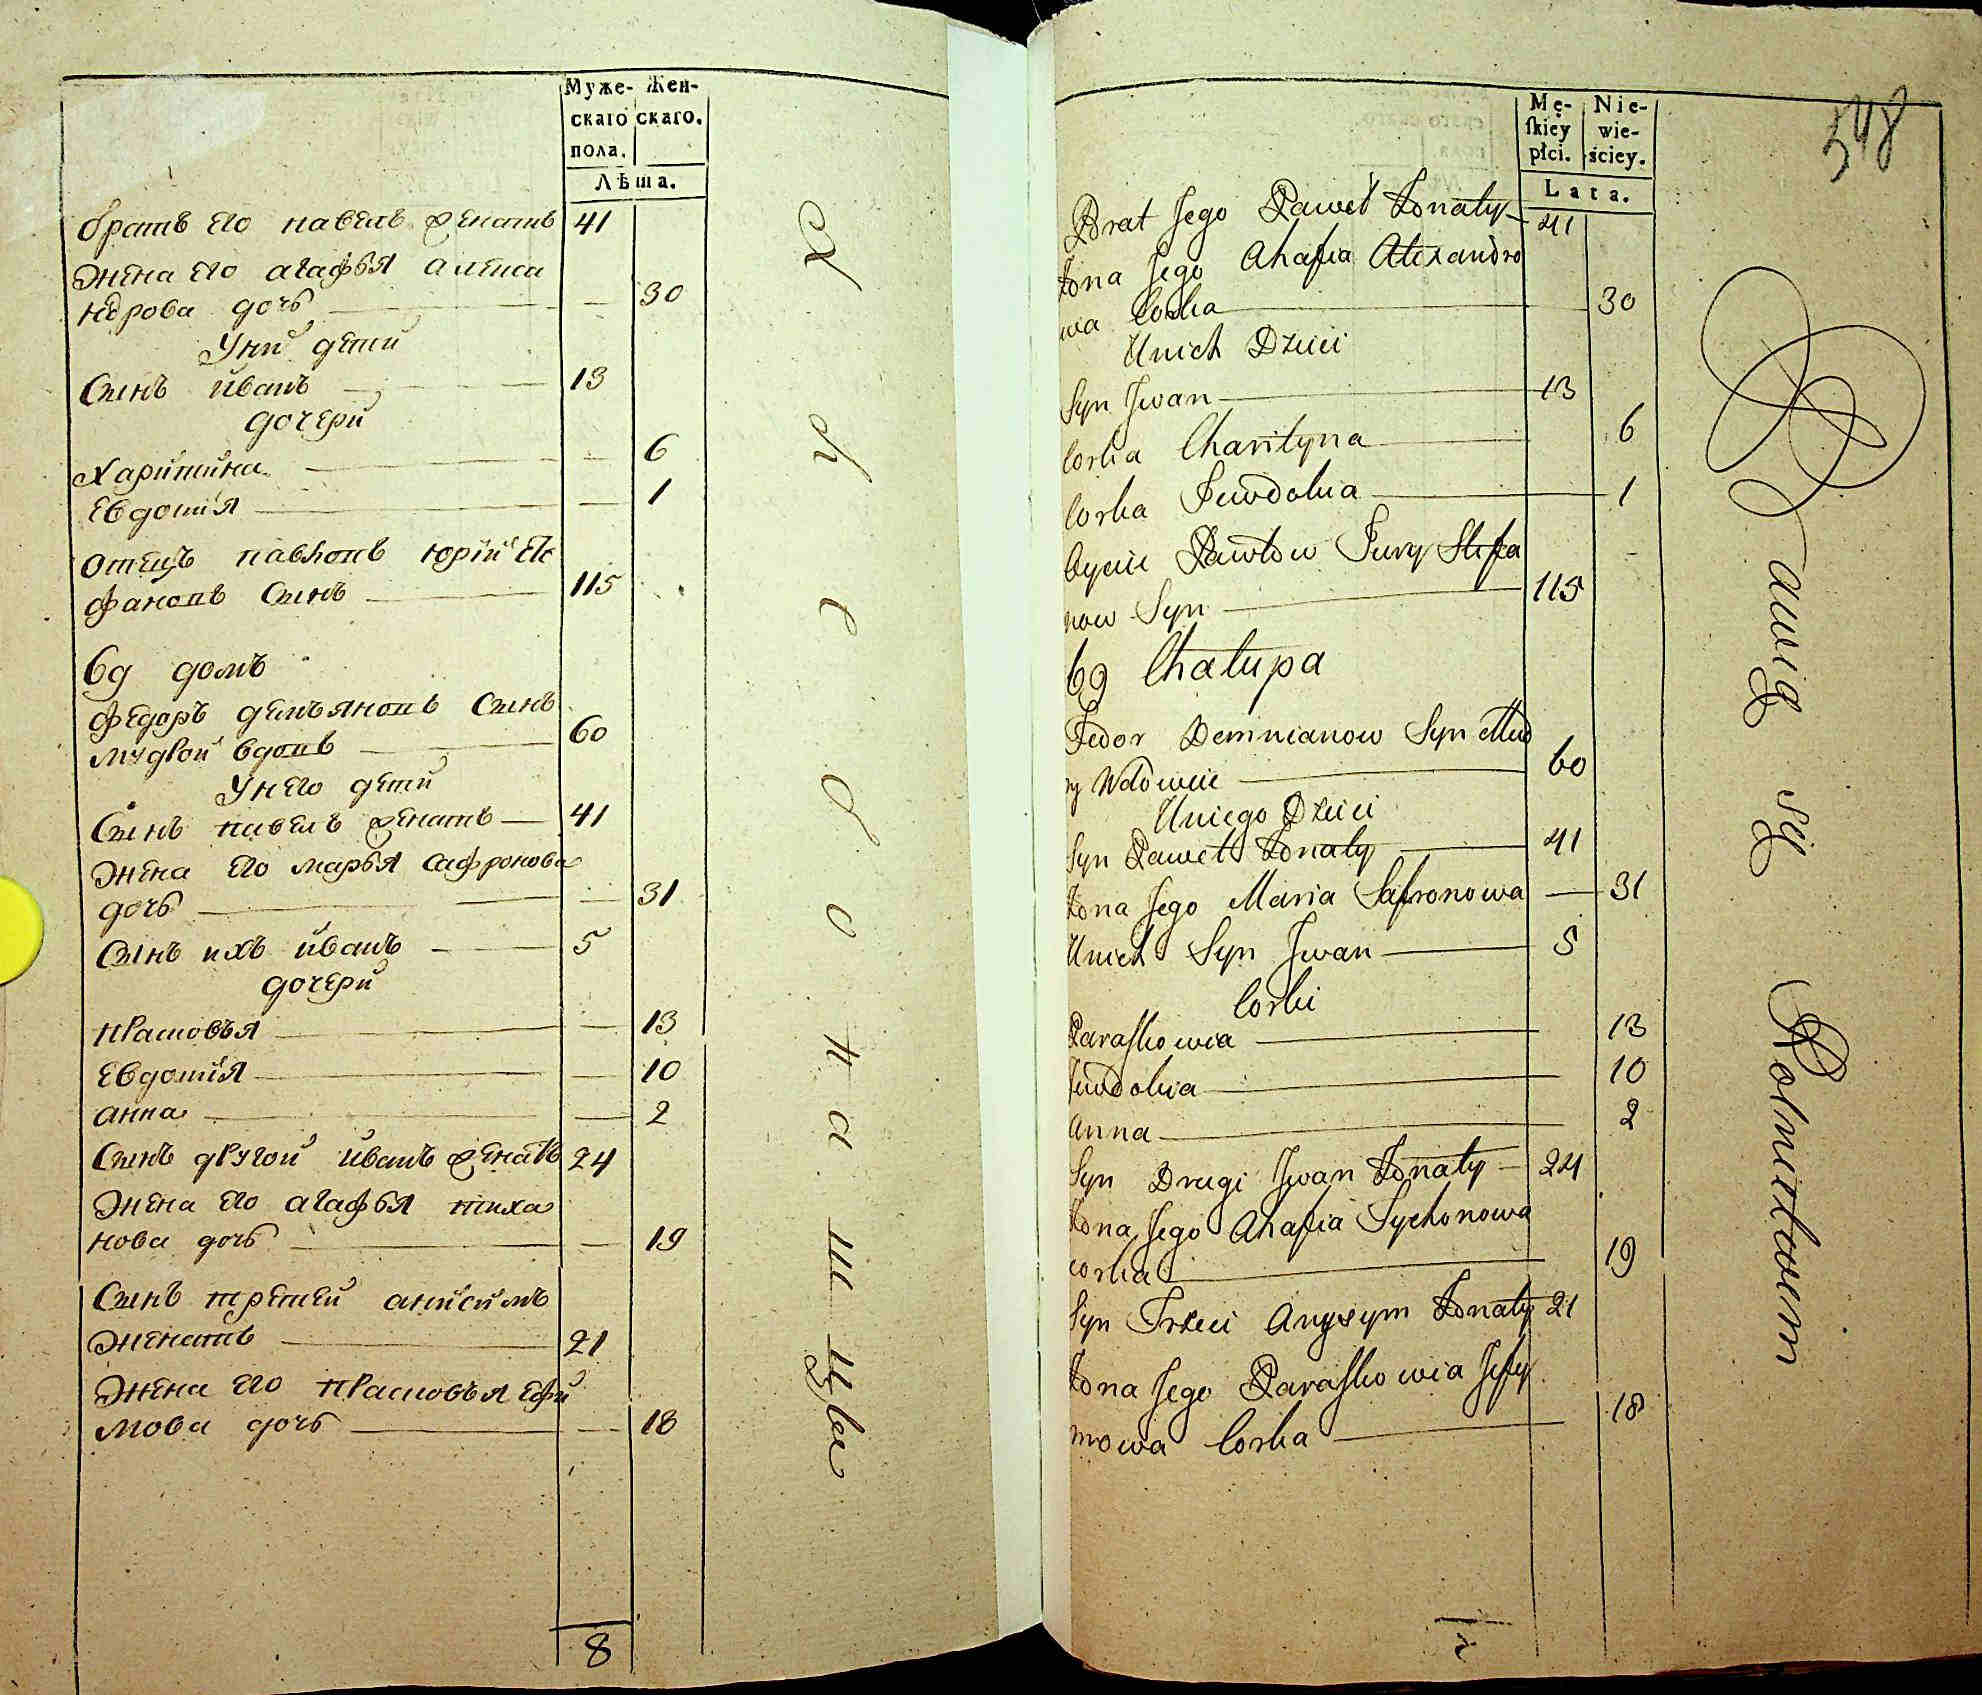 Муже-
скаго
пола.
Жен-
скаго.
Лѣта.
братъ его павелъ женатъ 41
жена его агафья алекса
ндрова дочь — — 30
Уних дети
Сынъ иванъ — 13
дочери
Харитина — — 6
Евдотiя — — 1
отецъ павловъ юрiй сте
фановъ Сынъ — 115
69 домъ
федоръ демъяновъ Сынъ
мудрой вдовъ — 60
Унего дети
Сынъ павелъ женатъ — 41
жена его марья сафронова
дочь — — 31
Сынъ ихъ иванъ — 5
дочери
прасковья — — 13
Евдотiя — — 10
анна — — 2
Сынъ другой иванъ женатъ 24
жена его агафья тиха
нова дочь — — 19
Сынъ третей анисимъ
женатъ — 21
жена его прасковья ефи
мова дочь — — 18
8
Хлебопашцы
548
Mę-
ſkiéy
płci.
Nie-
wie-
ściey.
Lata.
Brat Jego Paweł Żonaty — 41
Żona Jego Ahafia Alexandro
wa Corka — 30
Unich Dzieci
Syn Jwan — 13
Corka Charityna — 6
Corka Jewdokia — 1
Oyciec Pawłow Jury Stefa
now Syn — 115
69 Chałupa
Fedor Demnianow Syn Mud
ry Wdowiec — 60
Uniego Dzieci
Syn Paweł Żonaty — 41
Żona Jego Maria Safronowa — 31
Unich Syn Jwan — 5
Corki
Paraskowia — 13
Jewdokia — 10
Anna — 2
Syn Drugi Jwan Żonaty — 24
Żona Jego Ahafia Tychonowa
corka — 19
Syn Trzeci Anyzym Żonaty 21
Żona Jego Paraskowia Jefy
mowa Corka — 18
Bawią się Rolnictwem